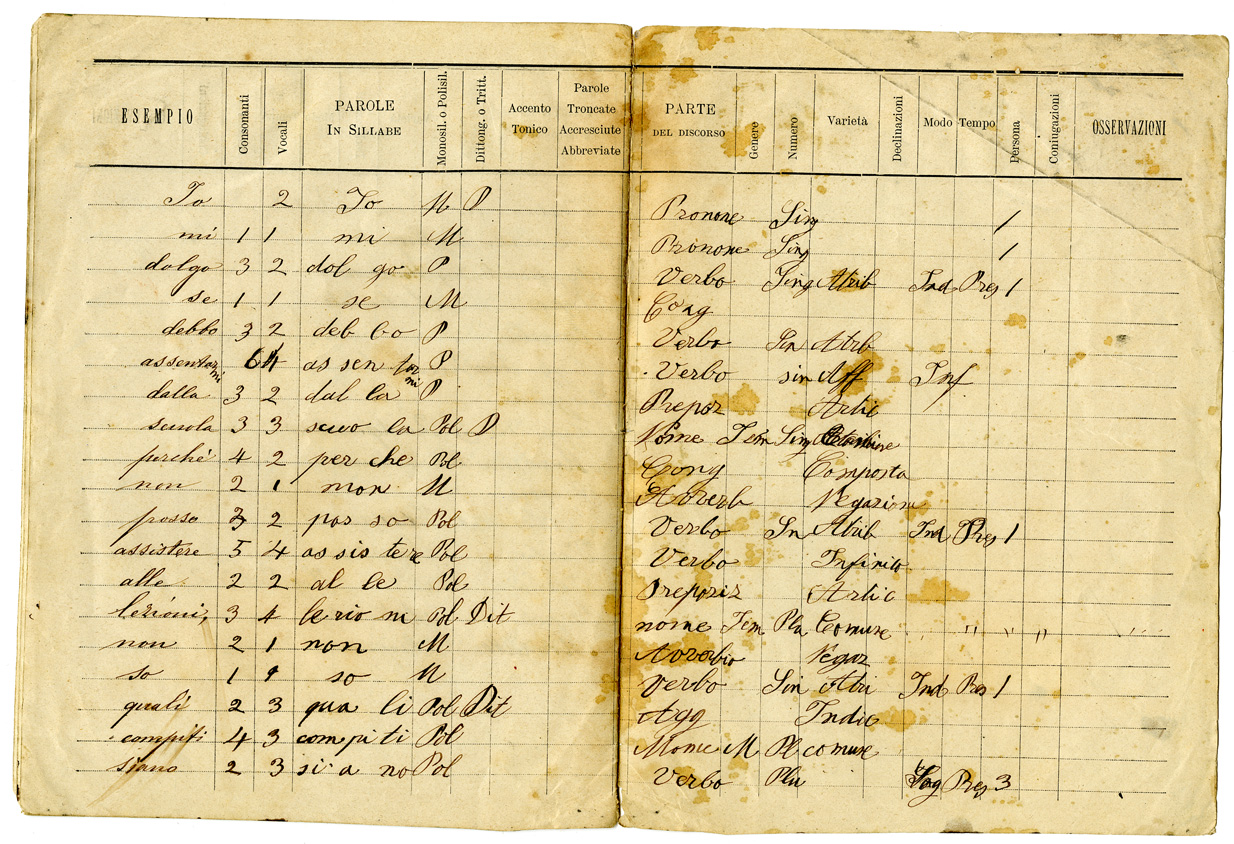 ESEMPIO Consonanti Vocali PAROLE IN SILLABE Monosil. o Polisil. Dittong. o Tritt. Accento Tonico Parole Troncate Accresciute Abbreviate PARTE DEL DISCORSO Genere Numero Varietà Declinazioni Modo Tempo Persona Coniugazioni OSSERVAZIONI
Io 2 Io M D Pronone Sing 1
mi 1 1 mi M Pronone Sing 1
dolgo 3 2 dol go P Verbo Sing Atrib Ind Pres 1
se 1 1 se M Cong
debbo 3 2 deb bo P Verbo Sin Atrib
assentarmi 6 4 as sen tar mi P Verbo sin Aff Inf
dalla 3 2 dal la P Prepoz Artic
scuola 3 3 scuo la Pol D Nome Fem Sing
perchè 4 2 per che Pol Cong Composta
non 2 1 non M Avverb Negazion
posso 3 2 pos so Pol Verbo Sn Atrib Ind Pres 1
assistere 5 4 as sis te re Pol Verbo Infinito
alle 2 2 al le Pol Preposiz Artic
lezioni, 3 4 le zio ni Pol Dit nome Fem Plu Comune " " "
non 2 1 non M Avverbio Negaz
so 1 1 so M Verbo Sin Atri Ind Pres 1
quali 2 3 qua li Pol Dit Agg Indic
compiti 4 3 com pi ti Pol Nome M Pl comune
siano 2 3 si a no Pol Verbo Plu Sog Pres 3